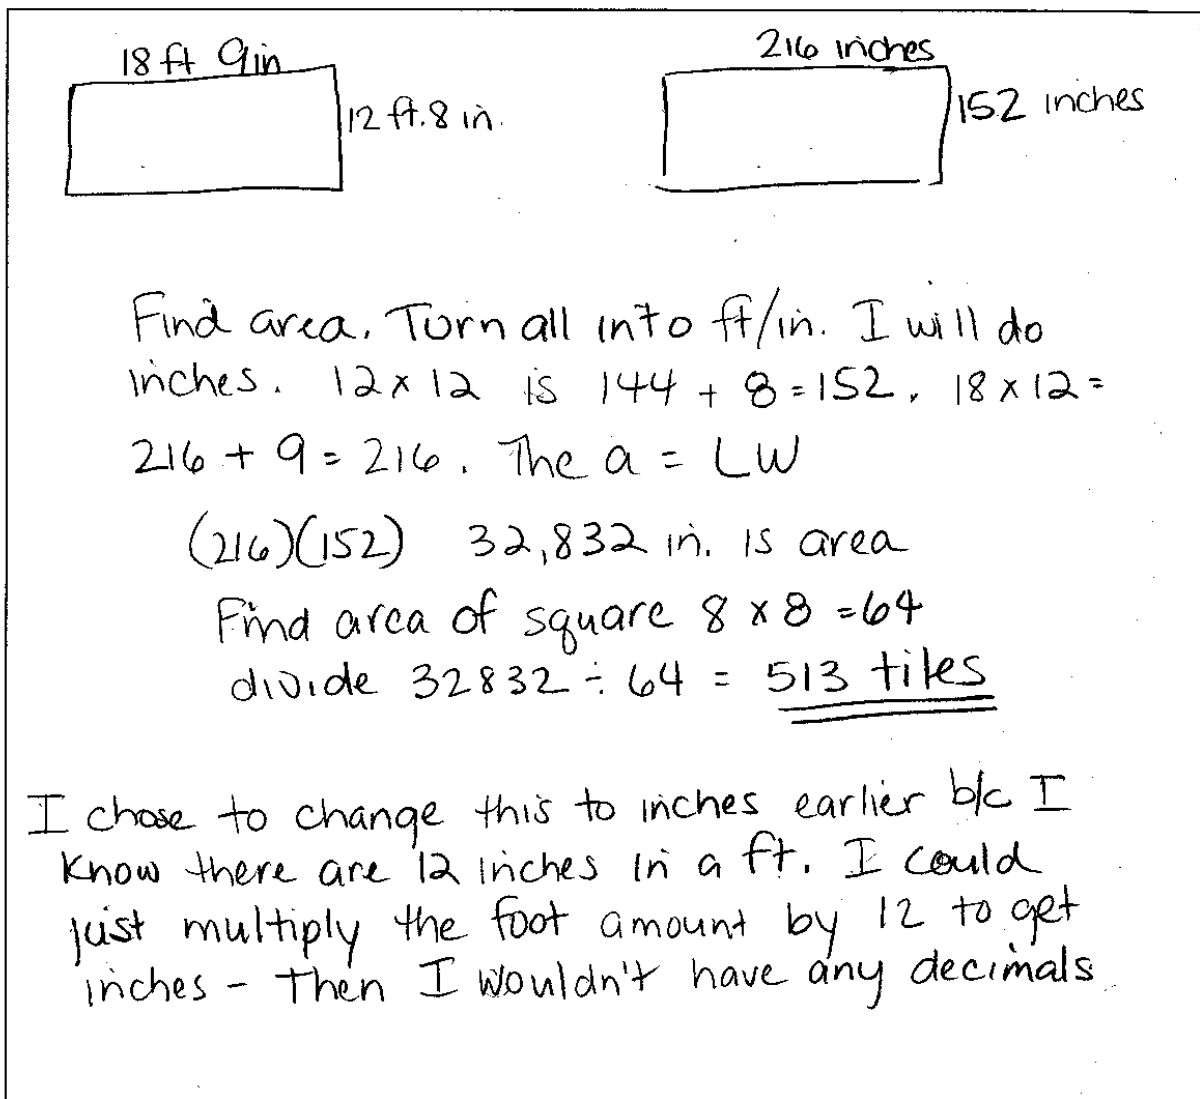 18 ft 9in
12 ft. 8 in.
216 inches
152 inches
Find area. Turn all into ft/in. I will do
inches. 12 x 12 is 144 + 8 = 152. 18 x 12 =
216 + 9 = 216. The a = LW
(216)(152) 32,832 in. is area
Find area of square 8 x 8 = 64
divide 32832 ÷ 64 = 513 tiles
I chose to change this to inches earlier b/c I
know there are 12 inches in a ft. I could
just multiply the foot amount by 12 to get
inches - Then I wouldn't have any decimals